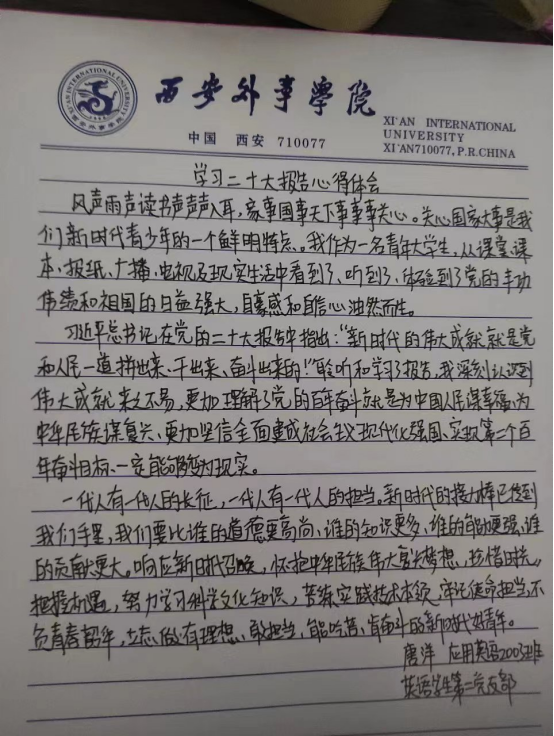 XI'AN INTERNATIONAL UNIVERSITY
西安外事学院
西安外事學院
中国 西安 710077
XI'AN INTERNATIONAL
UNIVERSITY
XI'AN710077,P.R.CHINA
学习二十大报告心得体会
风声雨声读书声声声入耳,家事国事天下事事事关心。关心国家大事是我
们新时代青少年的一个鲜明特点。我作为一名青年大学生,从课堂、课
本、报纸、广播、电视及现实生活中看到了、听到了、体验到了党的丰功
伟绩和祖国的日益强大,自豪感和自信心油然而生。
习近平总书记在党的二十大报告中指出:“新时代的伟大成就就是党
和人民一道拼出来、干出来、奋斗出来的!”聆听和学习了报告,我深刻认识到
伟大成就来之不易,更加理解了党的百年奋斗就是为中国人民谋幸福、为
中华民族谋复兴、更加坚信全面建成社会主义现代化强国、实现第二个百
年奋斗目标、一定能够变为现实。
一代人有一代人的长征,一代人有一代人的担当。新时代的接力棒已传到
我们手里,我们要比谁的道德更高尚、谁的知识更多、谁的能力更强、谁
的贡献更大。响应新时代召唤,怀抱中华民族伟大复兴梦想,珍惜时光、
把握机遇,努力学习科学文化知识,苦练实践技术本领,牢记使命担当,不
负青春韶华,立志做有理想、敢担当、能吃苦、肯奋斗的新时代好青年。
唐洋 应用英语2003班
英语学生第二党支部